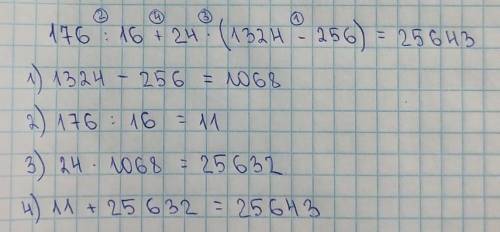 ② ④ ③ ①
176 : 16 + 24 · (1324 - 256) = 25643
1) 1324 - 256 = 1068
2) 176 : 16 = 11
3) 24 · 1068 = 25632
4) 11 + 25632 = 25643